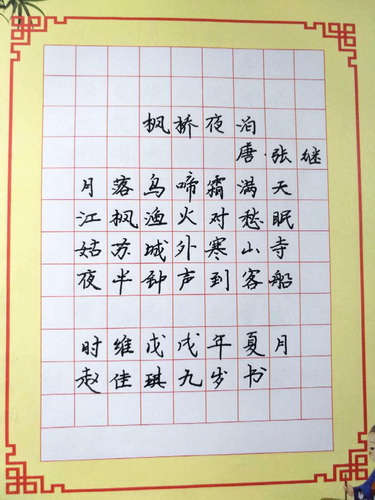 枫桥夜泊
唐·张继
月落乌啼霜满天
江枫渔火对愁眠
姑苏城外寒山寺
夜半钟声到客船
时维戊戌年夏月
赵佳琪九岁书